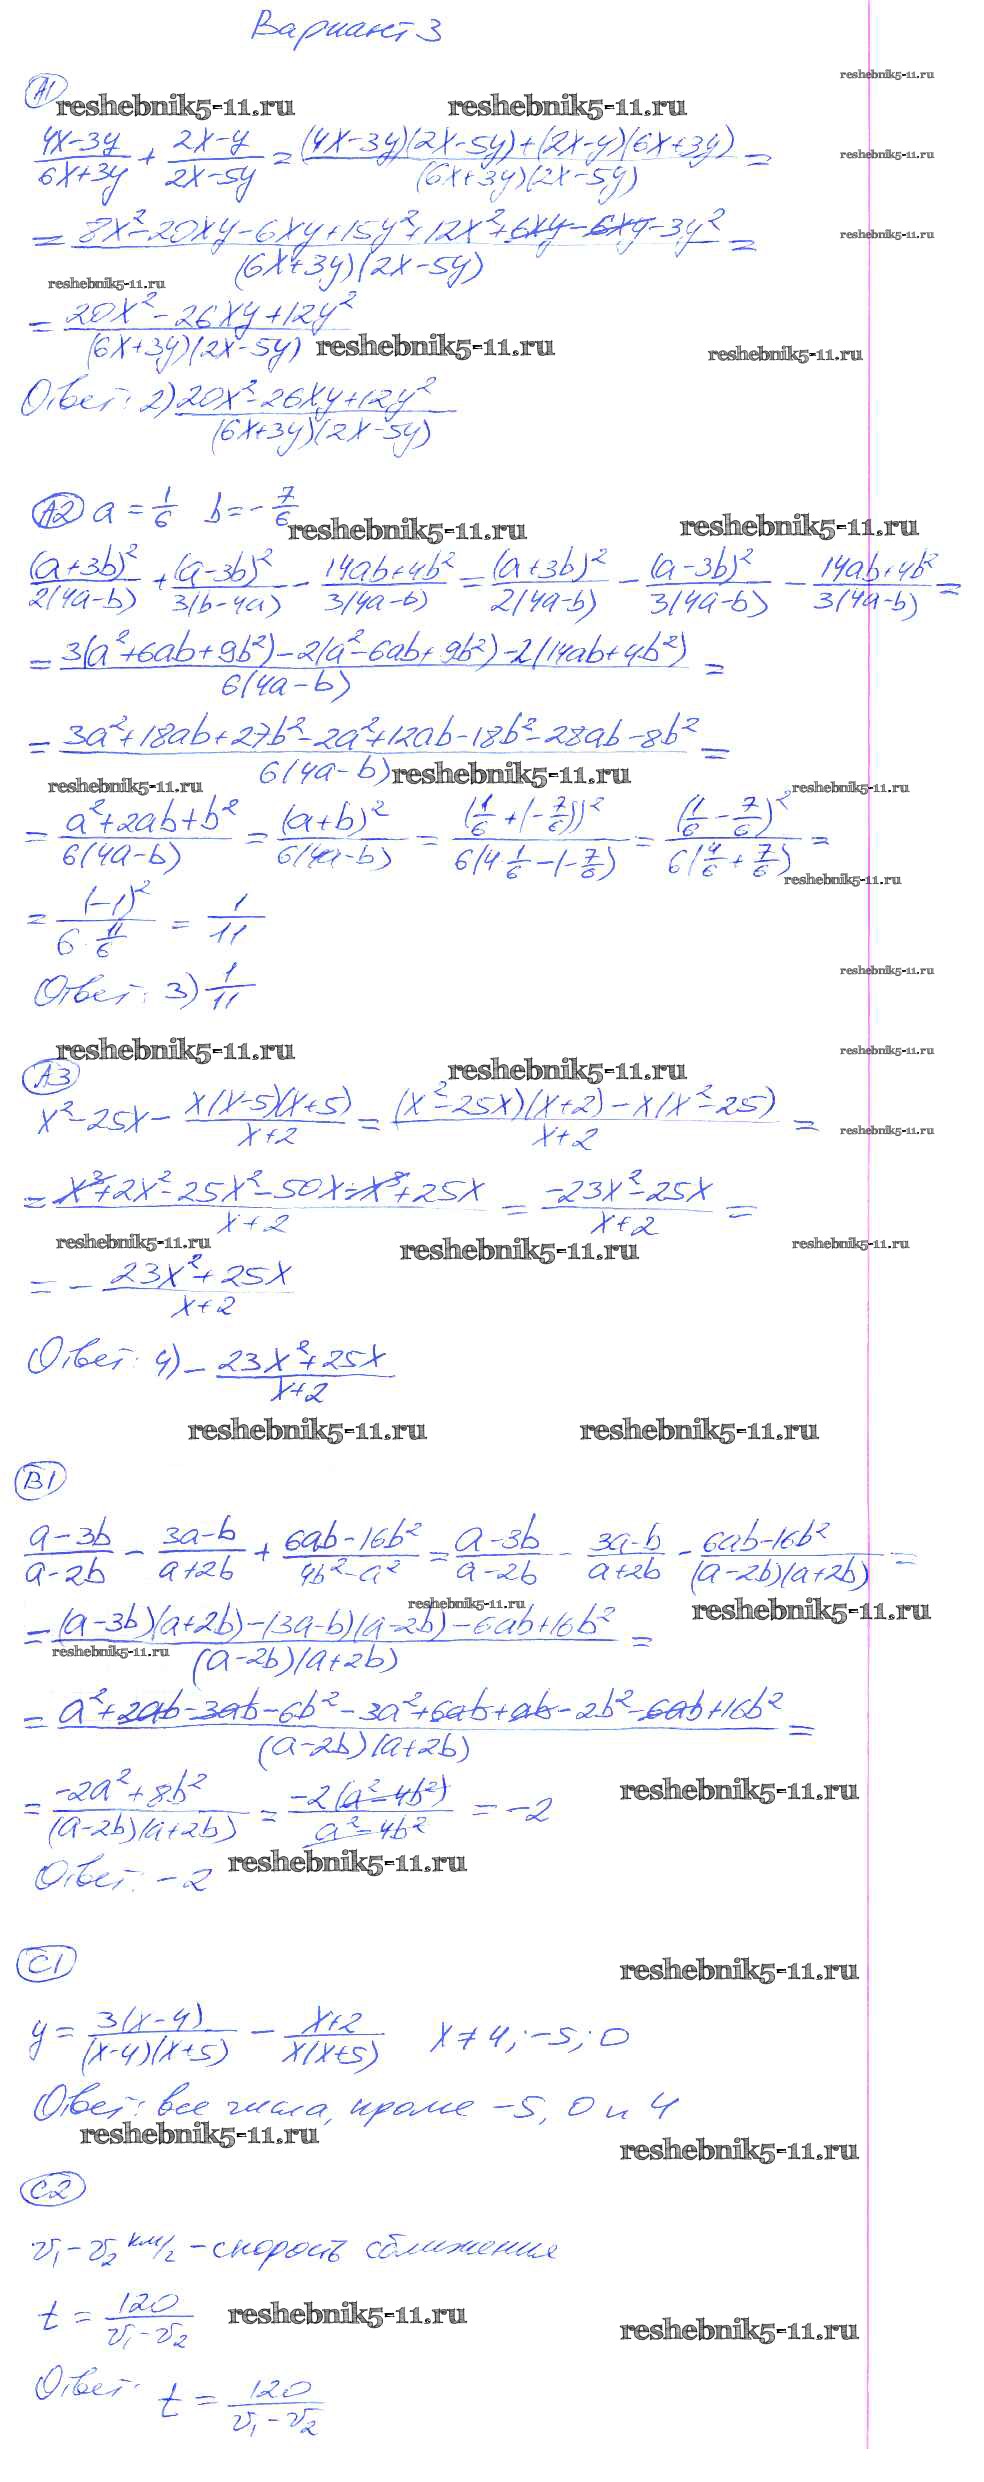 Вариант 3
A1
reshebnik5-11.ru reshebnik5-11.ru reshebnik5-11.ru
(4x-3y)/(6x+3y) + (2x-y)/(2x-5y) = ((4x-3y)(2x-5y)+(2x-y)(6x+3y))/((6x+3y)(2x-5y)) =
reshebnik5-11.ru
= (8x²-20xy-6xy+15y²+12x²+6xy-6xy-3y²)/((6x+3y)(2x-5y)) =
reshebnik5-11.ru
reshebnik5-11.ru
= (20x²-26xy+12y²)/((6x+3y)(2x-5y))
reshebnik5-11.ru reshebnik5-11.ru
Ответ: 2) (20x²-26xy+12y²)/((6x+3y)(2x-5y))
A2 a = 1/6 b = -7/6
reshebnik5-11.ru reshebnik5-11.ru
(a+3b)²/(2(4a-b)) + (a-3b)²/(3(b-4a)) - (14ab+4b²)/(3(4a-b)) = (a+3b)²/(2(4a-b)) - (a-3b)²/(3(4a-b)) - (14ab+4b²)/(3(4a-b)) =
= (3(a²+6ab+9b²)-2(a²-6ab+9b²)-2(14ab+4b²))/(6(4a-b)) =
= (3a²+18ab+27b²-2a²+12ab-18b²-28ab-8b²)/(6(4a-b)) =
reshebnik5-11.ru reshebnik5-11.ru reshebnik5-11.ru
= (a²+2ab+b²)/(6(4a-b)) = (a+b)²/(6(4a-b)) = (1/6+(-7/6))²/(6(4·1/6-(-7/6))) = (1/6-7/6)²/(6(4/6+7/6)) =
reshebnik5-11.ru
= (-1)²/(6·11/6) = 1/11
Ответ: 3) 1/11
reshebnik5-11.ru
reshebnik5-11.ru reshebnik5-11.ru
A3
reshebnik5-11.ru
x²-25x - x(x-5)(x+5)/(x+2) = ((x²-25x)(x+2)-x(x²-25))/(x+2) =
reshebnik5-11.ru
= (x³+2x²-25x²-50x-x³+25x)/(x+2) = (-23x²-25x)/(x+2) =
reshebnik5-11.ru reshebnik5-11.ru reshebnik5-11.ru
= - (23x²+25x)/(x+2)
Ответ: 4) - (23x²+25x)/(x+2)
reshebnik5-11.ru reshebnik5-11.ru
B1
(a-3b)/(a-2b) - (3a-b)/(a+2b) + (6ab-16b²)/(4b²-a²) = (a-3b)/(a-2b) - (3a-b)/(a+2b) - (6ab-16b²)/((a-2b)(a+2b)) =
reshebnik5-11.ru reshebnik5-11.ru
= ((a-3b)(a+2b)-(3a-b)(a-2b)-6ab+16b²)/((a-2b)(a+2b)) =
reshebnik5-11.ru
= (a²+2ab-3ab-6b²-3a²+6ab+ab-2b²-6ab+16b²)/((a-2b)(a+2b)) =
reshebnik5-11.ru
= (-2a²+8b²)/((a-2b)(a+2b)) = -2(a²-4b²)/(a²-4b²) = -2
Ответ: -2
reshebnik5-11.ru
C1
reshebnik5-11.ru
y = 3(x-4)/((x-4)(x+5)) - (x+2)/(x(x+5)) x≠4; -5; 0
Ответ: все числа, кроме -5, 0 и 4
reshebnik5-11.ru
reshebnik5-11.ru
C2
v₁-v₂ км/г - скорость сближения
t = 120/(v₁-v₂)
reshebnik5-11.ru reshebnik5-11.ru
Ответ: t = 120/(v₁-v₂)